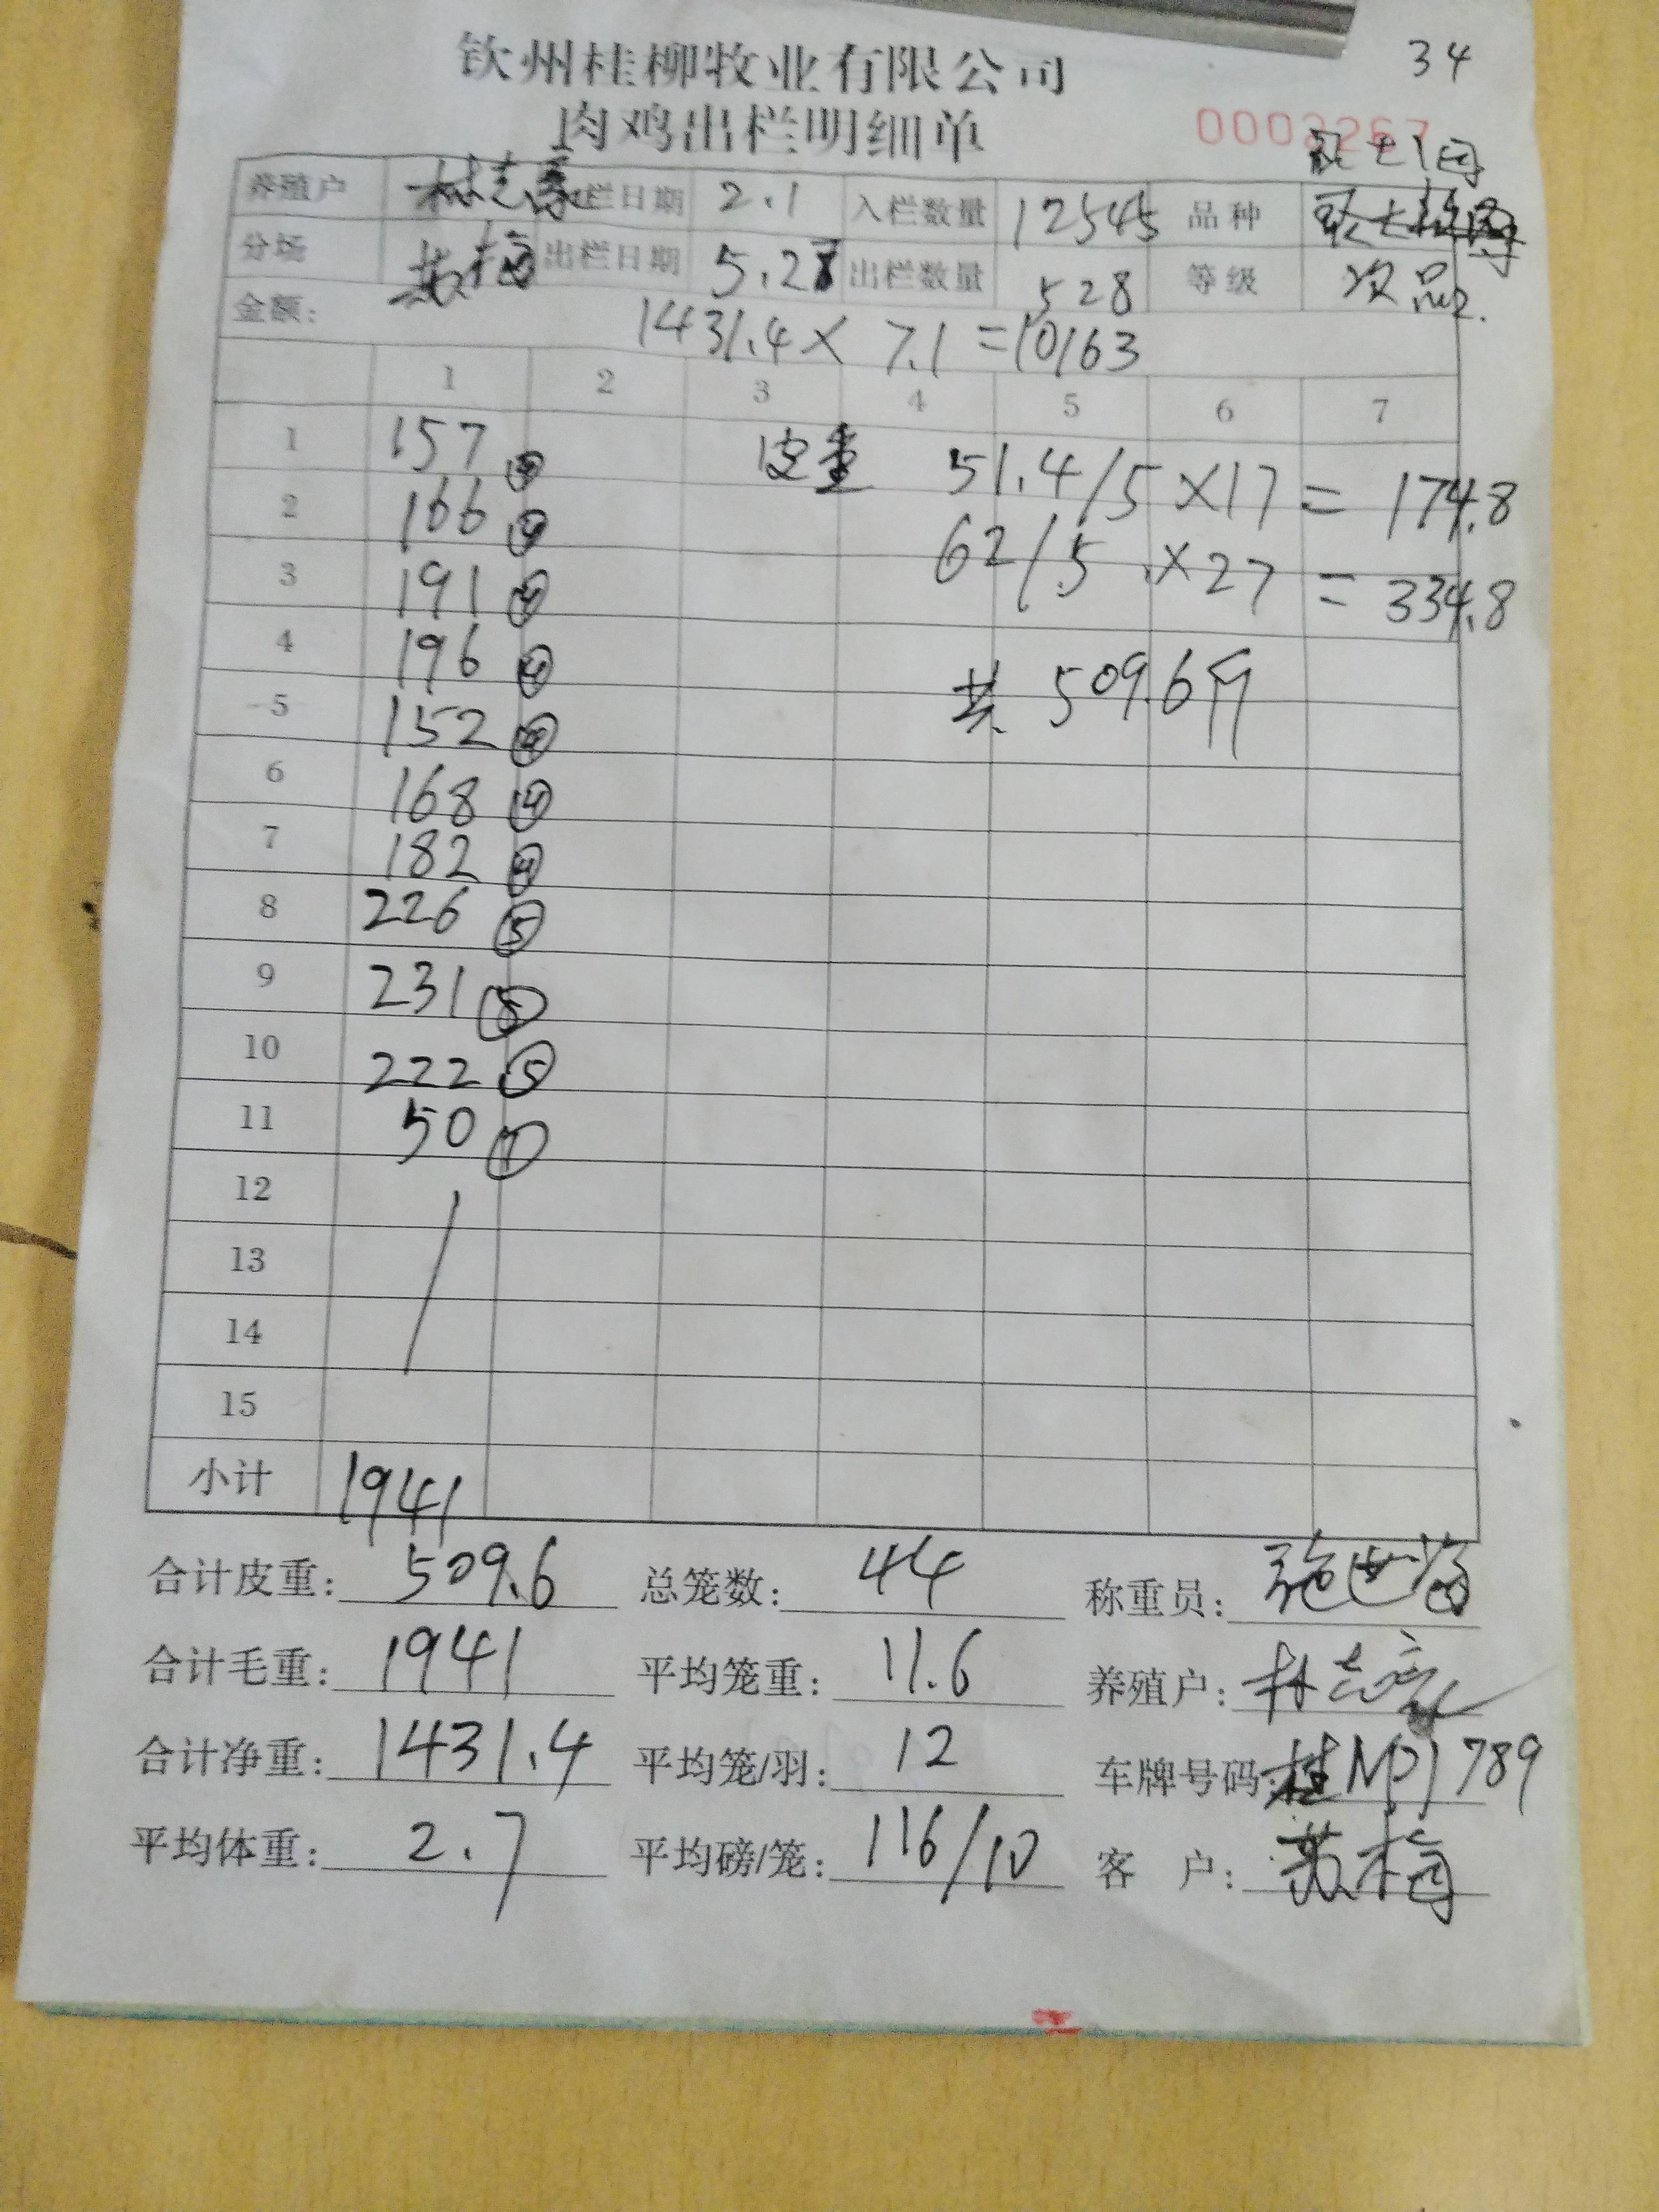 34
钦州桂柳牧业有限公司
肉鸡出栏明细单
0003267
养殖户 林志豪 栏日期 2.1 入栏数量 12545 品种
分场 出栏日期 5.28 出栏数量 528 等级 次品
金额: 1431.4×7.1=10163
1 2 3 4 5 6 7
1 157 ④ 皮重 51.4/5×17=174.8
2 166 ④ 62/5×27=334.8
3 191 ④
4 196 ④ 共509.6斤
5 152 ④
6 168 ④
7 182 ④
8 226 ⑤
9 231 ⑤
10 222 ⑤
11 50 ①
12
13
14
15
小计 1941
合计皮重: 509.6 总笼数: 44 称重员:
合计毛重: 1941 平均笼重: 11.6 养殖户: 林志豪
合计净重: 1431.4 平均笼/羽: 12 车牌号码: 桂NP1789
平均体重: 2.7 平均磅/笼: 116/10 客 户: 苏梅